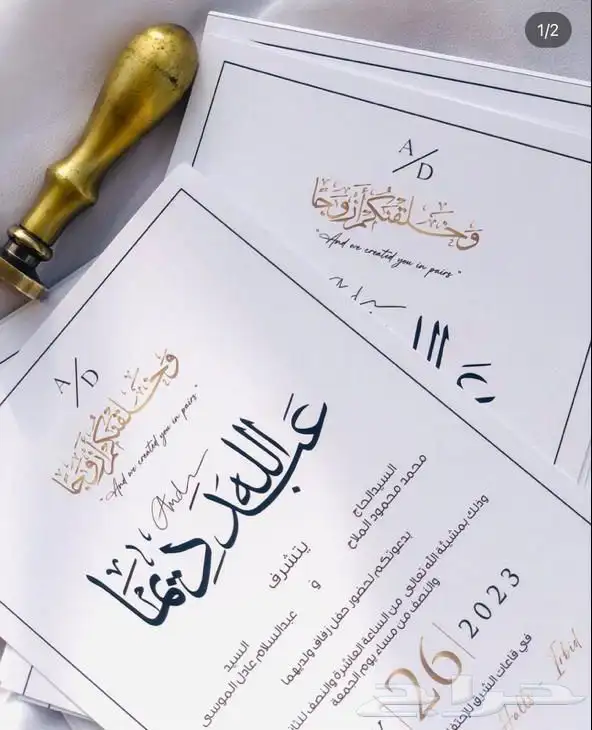 1/2
A/D
وَخَلَقْنَاكُمْ أَزْوَاجًا
"And we created you in pairs"
A/D
وَخَلَقْنَاكُمْ أَزْوَاجًا
"And we created you in pairs"
عبدالله
And
ديما
السيد الحاج
محمد محمود الملاح
يتشرف
و
السيد
عبدالسلام عادل الموسى
بدعوتكم لحضور حفل زفاف ولديهما
وذلك بمشيئة الله تعالى من الساعة العاشرة والنصف
والنصف من مساء يوم الجمعة
26 | 2023
في قاعات الشرق
Irbid
حراج